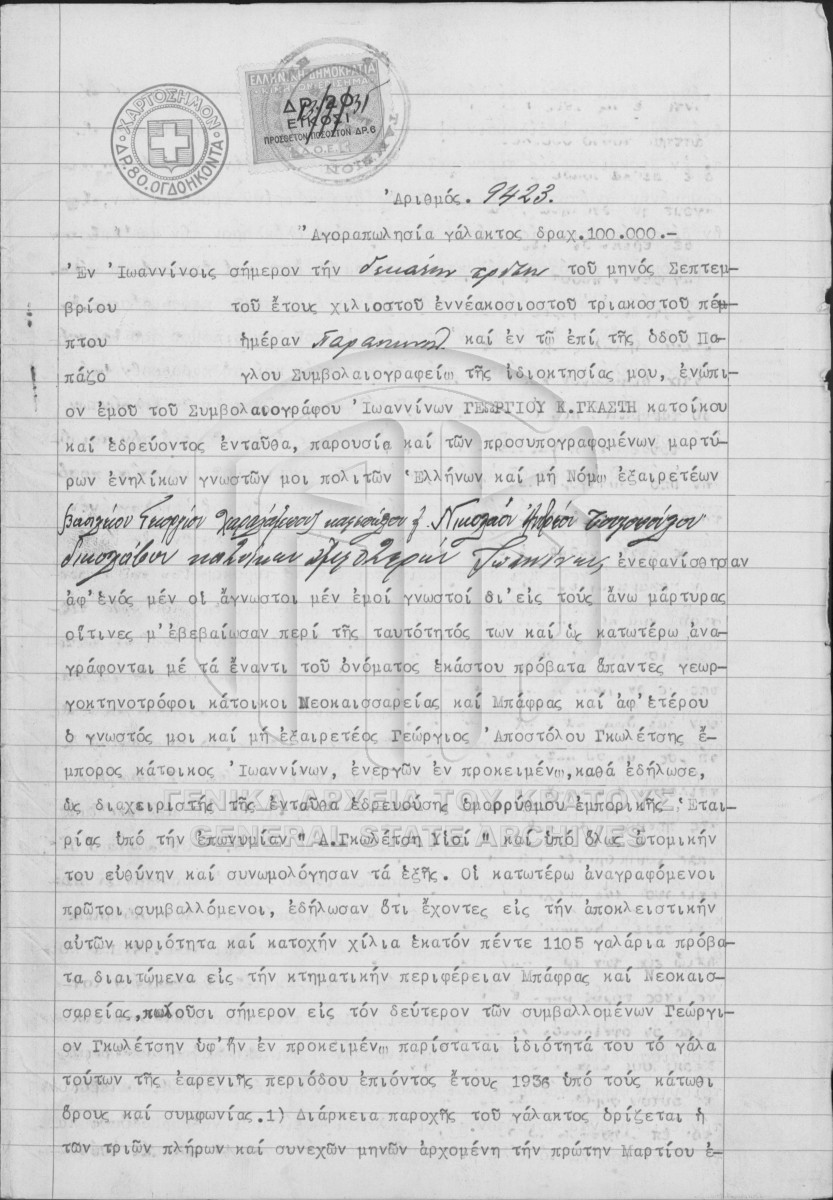 ΧΑΡΤΟΣΗΜΟΝ
ΔΡ.80.ΟΓΔΟΗΚΟΝΤΑ
ΕΛΛΗΝΙΚΗ ΔΗΜΟΚΡΑΤΙΑ
ΔΡ. 20
ΕΙΚΟΣΙ
ΠΡΟΣΘΕΤΟΝ ΠΟΣΟΣΤΟΝ ΔΡ.6
Ἀριθμός. 9423.
Ἀγοραπωλησία γάλακτος δραχ.100.000.-
Ἐν Ἰωαννίνοις σήμερον τήν δεκάτην τρίτην τοῦ μηνός Σεπτεμ-
βρίου τοῦ ἔτους χιλιοστοῦ ἐννέακοσιοστοῦ τριακοστοῦ πέμ-
πτου ἡμέραν Παρασκευή καί ἐν τῶ ἐπί τῆς ὁδοῦ Πα-
πάζο γλου Συμβολαιογραφείῳ τῆς ἰδιοκτησίας μου, ἐνώπι-
ον ἐμοῦ τοῦ Συμβολαιογράφου Ἰωαννίνων ΓΕΩΡΓΙΟΥ Κ.ΓΚΑΣΤΗ κατοίκου
καί ἑδρεύοντος ἐνταῦθα, παρουσία καί τῶν προσυπογραφομένων μαρτύ-
ρων ἐνηλίκων γνωστῶν μοι πολιτῶν Ἑλλήνων καί μή Νόμῳ ἐξαιρετέων
Βασιλείου Γεωργίου Νικολάου
κατοίκων ἐνεφανίσθησαν
ἀφ'ἑνός μέν οἱ ἄγνωστοι μέν ἐμοί γνωστοί δι'εἰς τούς ἄνω μάρτυρας
οἵτινες μ'ἐβεβαίωσαν περί τῆς ταυτότητός των καί ὡς κατωτέρω ἀνα-
γράφονται μέ τά ἔναντι τοῦ ὀνόματος ἑκάστου πρόβατα ἅπαντες γεωρ-
γοκτηνοτρόφοι κάτοικοι Νεοκαισσαρείας καί Μπάφρας καί ἀφ'ἑτέρου
ὁ γνωστός μοι καί μή ἐξαιρετέος Γεώργιος Ἀποστόλου Γκωλέτσης ἔ-
μπορος κάτοικος Ἰωαννίνων, ἐνεργῶν ἐν προκειμένῳ, καθά ἐδήλωσε,
ὡς διαχειριστής τῆς ἐνταῦθα ἑδρευούσης ὁμορρύθμου ἐμπορικῆς Ἑται-
ρίας ὑπό τήν ἐπωνυμίαν " Α.Γκωλέτση Υἱοί " καί ὑπό ὅλως ἀτομικήν
του εὐθύνην καί συνωμολόγησαν τά ἑξῆς. Οἱ κατωτέρω ἀναγραφόμενοι
πρῶτοι συμβαλλόμενοι, ἐδήλωσαν ὅτι ἔχοντες εἰς τήν ἀποκλειστικήν
αὐτῶν κυριότητα καί κατοχήν χίλια ἑκατόν πέντε 1105 γαλάρια πρόβα-
τα διαιτώμενα εἰς τήν κτηματικήν περιφέρειαν Μπάφρας καί Νεοκαισ-
σαρείας, πωλοῦσι σήμερον εἰς τόν δεύτερον τῶν συμβαλλομένων Γεώργι-
ον Γκωλέτσην ὑφ'ἥν ἐν προκειμένῳ παρίσταται ἰδιότητά του τό γάλα
τούτων τῆς ἐαρενιῆς περιόδου ἐπιόντος ἔτους 1936 ὑπό τούς κάτωθι
ὅρους καί συμφωνίας.1) Διάρκεια παροχῆς τοῦ γάλακτος ὁρίζεται ἡ
τῶν τριῶν πλήρων καί συνεχῶν μηνῶν ἀρχομένη τήν πρώτην Μαρτίου ἐ-
ΓΕΝΙΚΑ ΑΡΧΕΙΑ ΤΟΥ ΚΡΑΤΟΥΣ
GENERAL STATE ARCHIVES